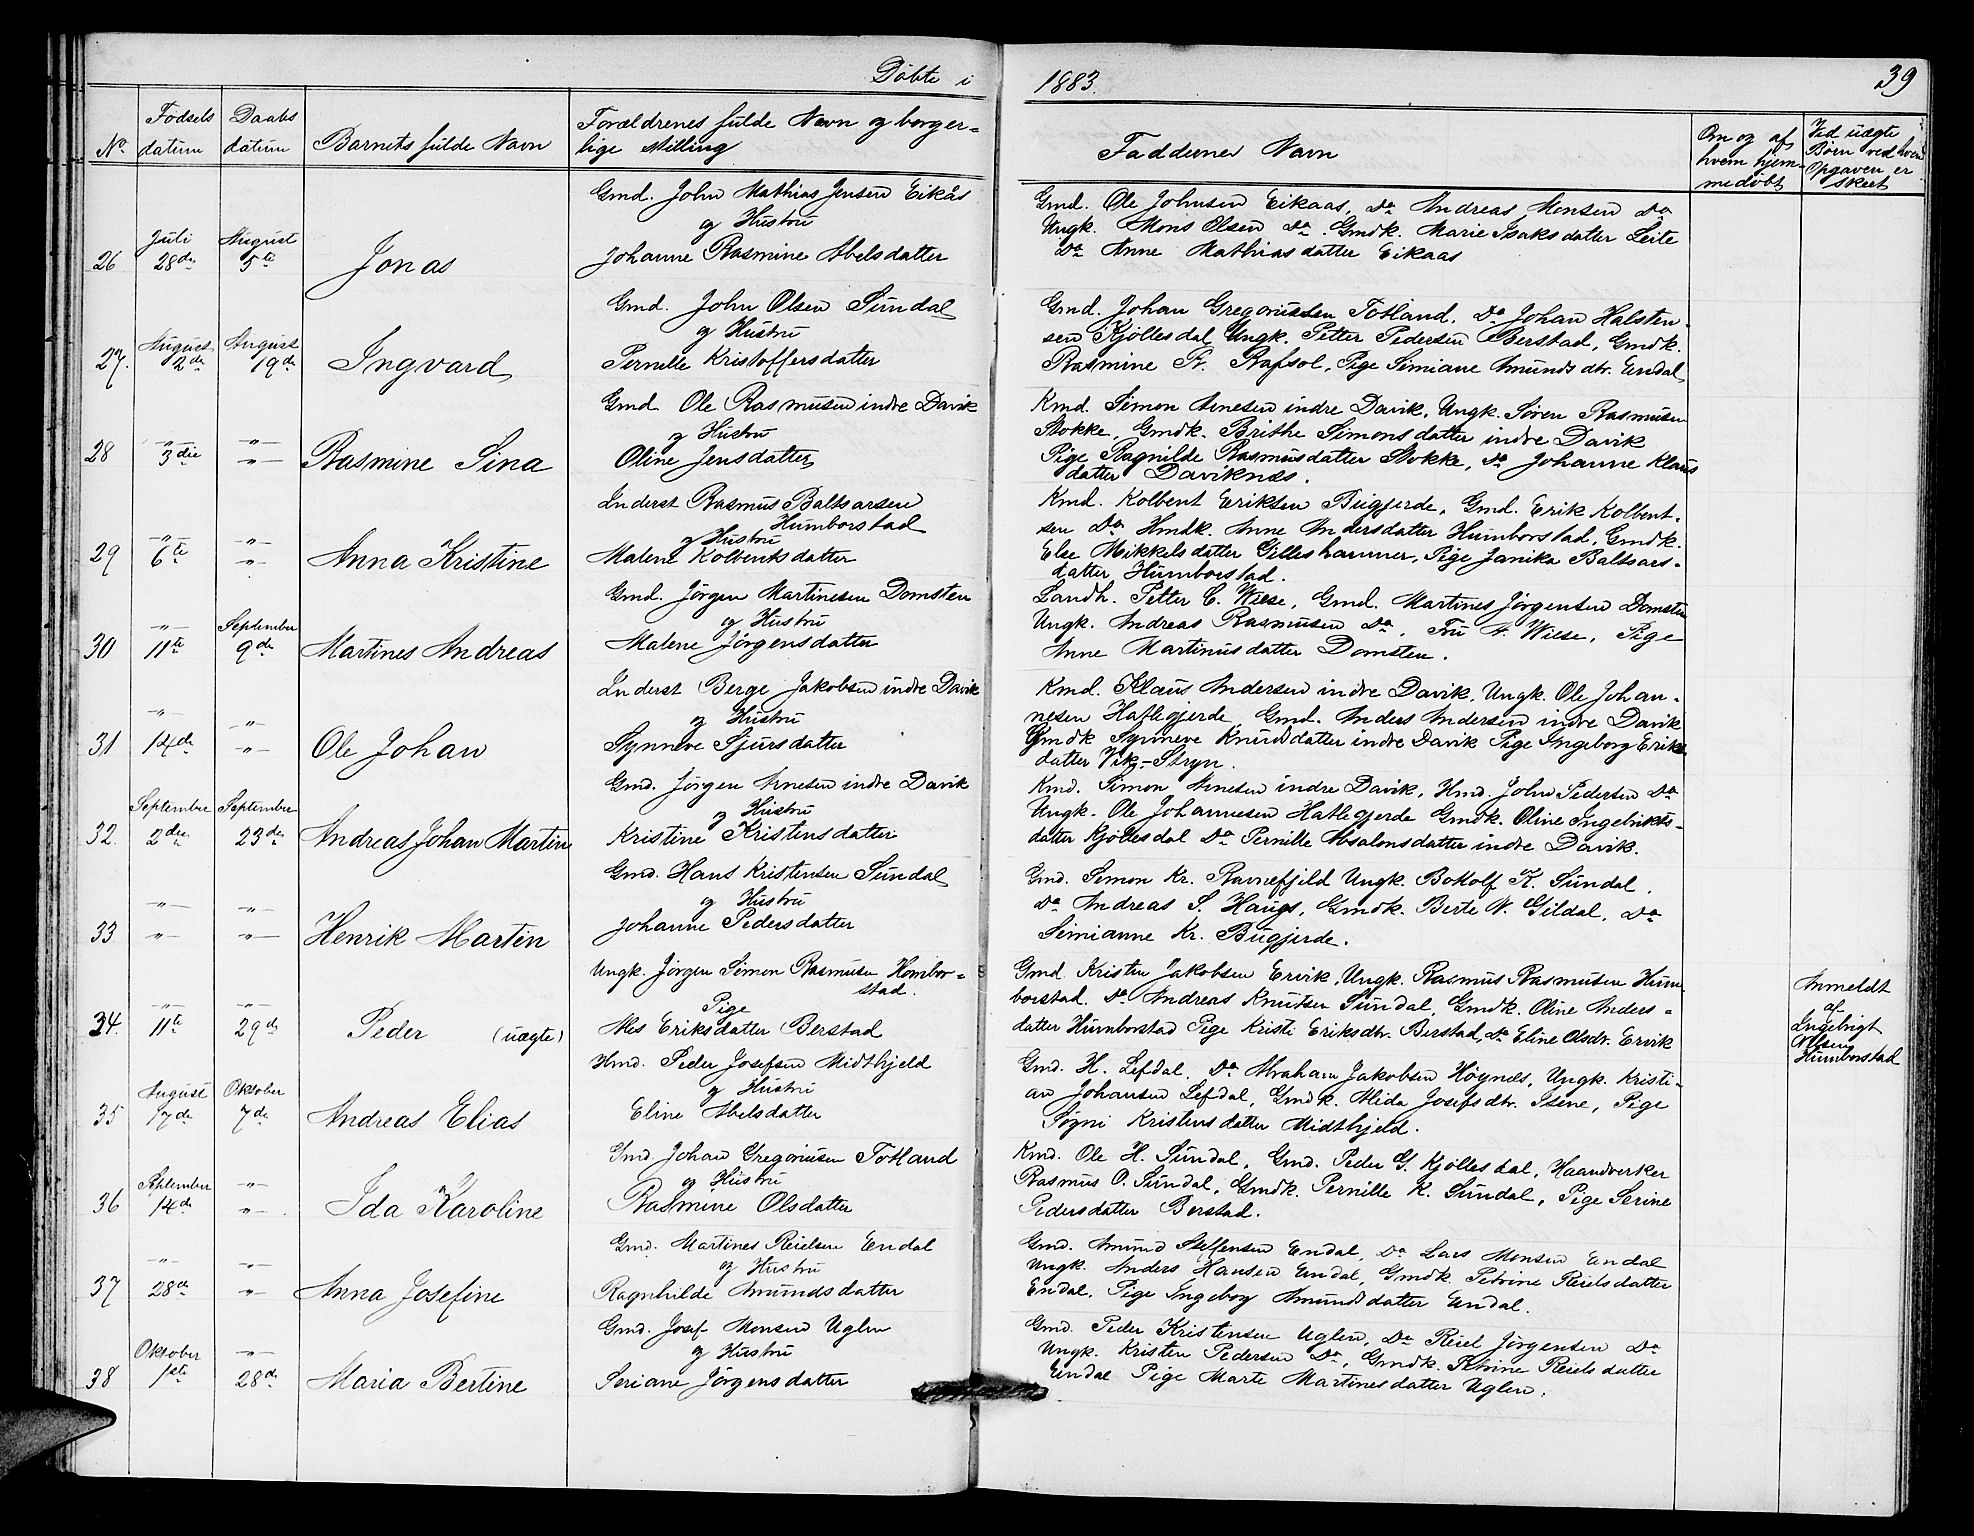 Døbte i 1883. 39
No Fødsels datum Daabs datum Barnets fulde Navn Forældrenes fulde Navn og borger=
lige stilling
Faddernes Navn
Om og af hvem hjem-
medøbt
Ved uægte
Børn ved hvem
Opgaven er
skeet
26 Juli 28de August 5te Jonas
Gmd. John Mathias Jensen Eikås
og Hustru
Johanne Rasmine Abelsdatter
Gmd. Ole Johnsen Eikaas, Do Andreas Monsen Do
Ungk. Mons Olsen Do. Gmdk. Marie Isaksdatter Leite
Do Anne Mathiasdatter Eikaas
27. August 2de August 19de Ingvard
Gmd. John Olsen Sundal
og Hustru
Pernille Kristoffersdatter
Gmd. Johan Gregoriussen Totland, Do Johan Halsten-
sen Kjöllesdal Ungk. Petter Pedersen Berstad, Gmdk.
Rasmine Fr. Rafsol, Pige Simiane Amundsdtr. Endal
28 -"- 3die -"- -"- Rasmine Sina
Gmd. Ole Rasmusen indre Davik
og Hustru
Oline Jensdatter
Kmd. Simon Arnesen indre Davik, Ungk. Søren Rasmusen
Stokke, Gmdk. Brithe Simonsdatter indre Davik
Pige Ragnilde Rasmusdatter Stokke, Do Johanne Klaus
datter Daviknes.
29 -"- 6te -"- -"- Anna Kristine
Inderst Rasmus Baltsarsen
Humborstad
og Hustru
Malene Kolbentsdatter
Kmd. Kolbent Eriksen Bugjerde, Gmd. Erik Kolbent-
sen Do Hmdk. Anne Andersdatter Humborstad, Gmdk.
Else Mikkelsdatter Gilleshammer, Pige Janika Baltsars-
datter Humborstad.
30 -"- 11te September 9de Martines Andreas
Gmd. Jörgen Martinesen Domsten
og Hustru
Malene Jörgensdatter
Landh. Petter C. Wiese, Gmd. Martines Jörgensen Domsten
Ungk. Andreas Rasmusen Do, Fru A. Wiese, Pige
Anne Martinusdatter Domsten.
31 -"- 14de -"- -"- Ole Johan
Inderst Berge Jakobsen indre Davik
og Hustru
Synneve Sjursdatter
Kmd. Klaus Andersen indre Davik, Ungk. Ole Johan-
nesen Hatlegjerde, Gmd. Anders Andersen indre Davik
Gmdk Synneve Knudsdatter indre Davik Pige Ingeborg Eriks
datter Vik-Stryn.
32. September 2den September 23de Andreas Johan Martin
Gmd. Jörgen Arnesen indre Davik
og Hustru
Kristine Kristensdatter
Kmd. Simon Arnesen indre Davik, Hmd. John Pedersen Do
Ungk. Ole Johannesen Hatlegjerde Gmdk. Oline Ingebrikts-
datter Kjöllesdal Do Pernille Absalonsdatter indre Davik.
33. -"- -"- -"- -"- Henrik Martin
Gmd. Hans Kristensen Sundal
og Hustru
Johanne Pedersdatter
Gmd. Simon Kr. Ravnefjeld Ungk. Botolf K. Sundal.
Do Andreas S. Haugs, Gmdk. Berte N. Gildal, Do
Simianne Kr. Bugjerde.
34. -"- 11te -"- 29de Peder (uægte)
Ungk. Jörgen Simon Rasmusen Hombor=
stad.
Pige
Mes Eriksdatter Berstad
Gmd. Kristen Jakobsen Ervik, Ungk. Rasmus Rasmusen Hum-
borstad. Do Andreas Knutsen Sundal, Gmdk. Oline Anders=
datter Humborstad Pige Kristi Eriksdtr. Berstad, Do Eline Olsdtr. Ervik
Anmeldt
af
Engebrigt
Olsen
Humborstad
35 August 17de Oktober 7de Andreas Elias
Hmd. Peder Josefsen Midthjeld
og Hustru
Eline Abelsdatter
Gmd. H. Lefdal, Do Abraham Jakobsen Høynes, Ungk. Kristi-
an Johansen Lefdal, Gmdk. Alida Josefsdtr. Isene, Pige
Sögni Kristensdatter Midthjeld.
36 September 14de -"- -"- Ida Karoline
Gmd Johan Gregoriusen Totland
og Hustru
Rasmine Olsdatter
Kmd. Ole H. Sundal, Gmd. Peder G. Kjöllesdal, Haandverker
Rasmus O. Sundal, Gmdk. Pernille K. Sundal, Pige Serine
Pedersdatter Berstad.
37 -"- 28de -"- -"- Anna Josefine
Gmd. Martines Reielsen Endal
og Hustru
Ragnhilde Amundsdatter
Gmd. Amund Steffensen Endal, Do Lars Monsen Endal
Ungk. Anders Hansen Endal, Gmdk. Petrine Reielsdatter
Endal, Pige Ingeborg Amundsdatter Endal.
38 Oktober 1ste -"- 28de Maria Bertine
Gmd. Josef Monsen Uglen
og Hustru
Seriane Jörgensdatter
Gmd. Peder Kristensen Uglen, Do Reiel Jörgensen Do
Ungk. Kristen Pedersen Do, Gmdk. Petrine Reielsdatter
Endal Pige Marte Martinesdatter Uglen.